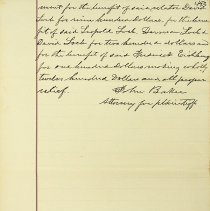 ment for the benefit of said relator David
Loeb for nine hundred dollars, for the bene
fit of said Leopold Loeb, Herman Loeb &
David Loeb for two hundred dollars and
for the benefit of said Frederick
for one hundred dollars making wholly
twelve hundred dollars and all proper
relief.
John Baker
Attorney for plaintiff